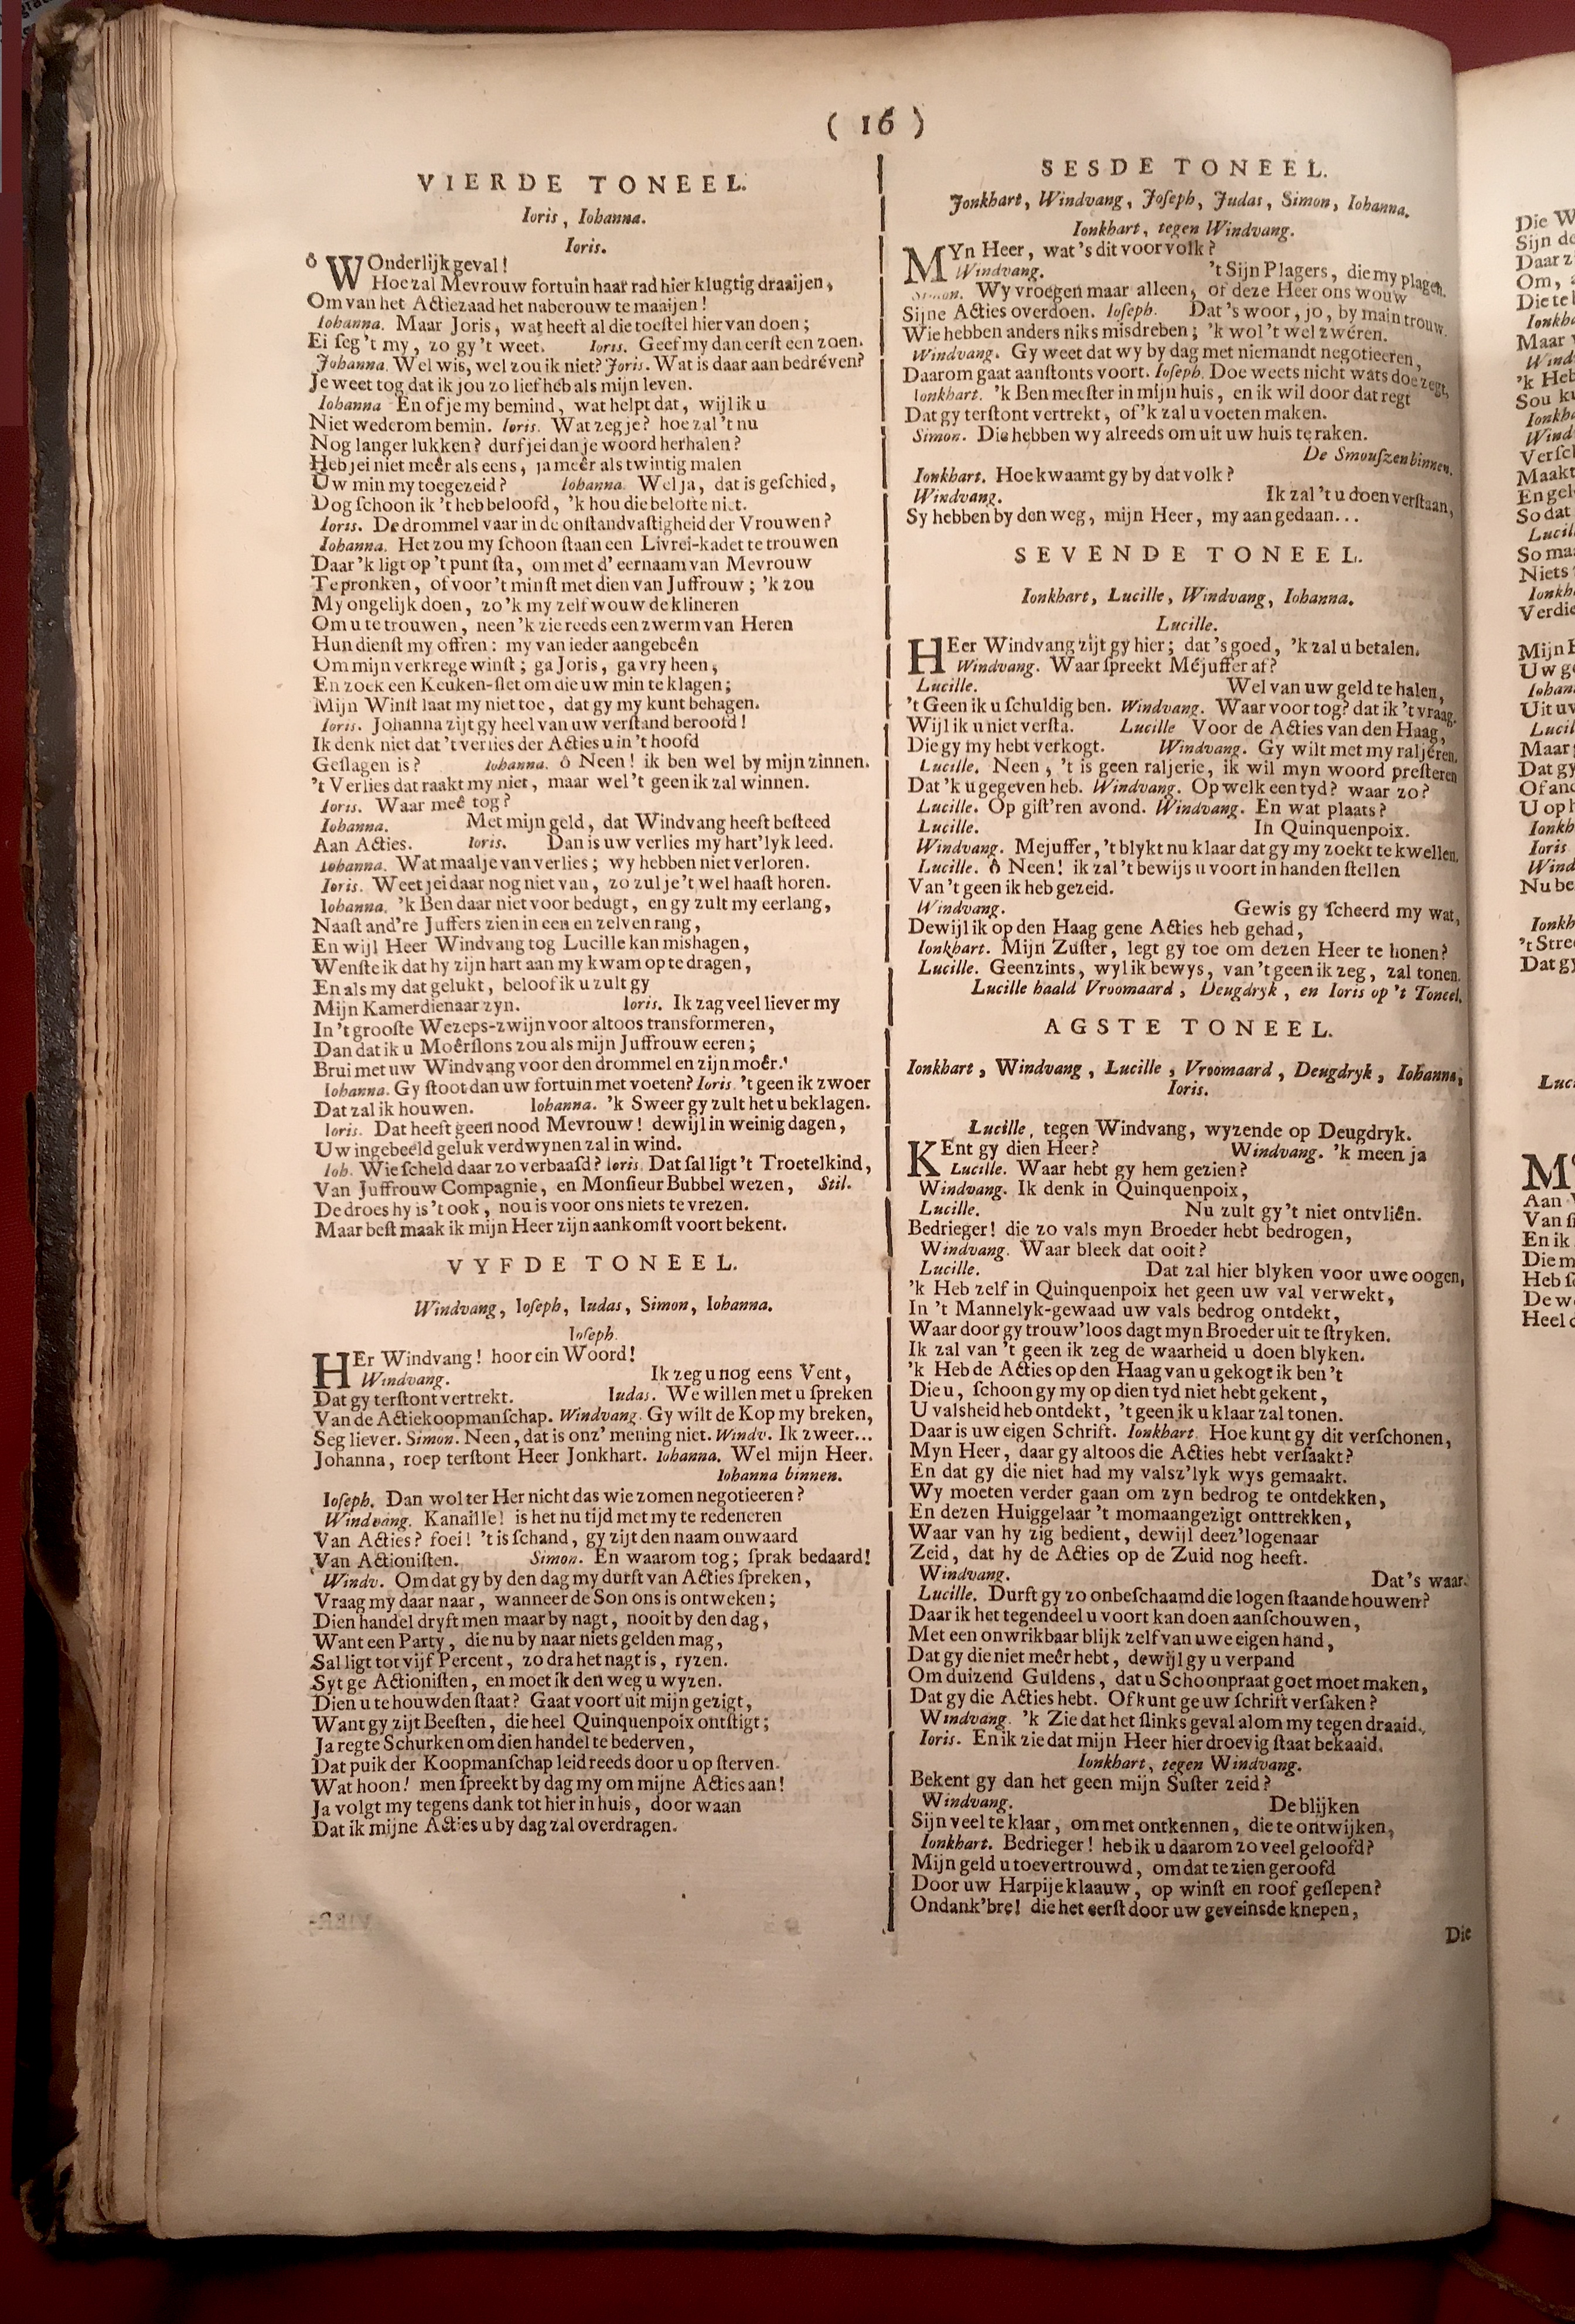 ( 16 )
VIERDE TONEEL.
Ioris, Iohanna.
Ioris.
ô WOnderlijk geval!
Hoe zal Mevrouw fortuin haar rad hier klugtig draaijen,
Om van het Actiezaad het naberouw te maaijen!
Iohanna. Maar Joris, wat heeft al die toestel hier van doen;
Ei seg 't my, zo gy 't weet. Ioris. Geef my dan eerst een zoen.
Johanna. Wel wis, wel zou ik niet? Joris. Wat is daar aan bedréven?
Je weet tog dat ik jou zo lief heb als mijn leven.
Iohanna En of je my bemind, wat helpt dat, wijl ik u
Niet wederom bemin. Ioris. Wat zeg je? hoe zal 't nu
Nog langer lukken? durf jei dan je woord herhalen?
Heb jei niet meêr als eens, ja meêr als twintig malen
Uw min my toegezeid? Iohanna. Wel ja, dat is geschied,
Dog schoon ik 't heb beloofd, 'k hou die belofte niet.
Ioris. De drommel vaar in de onstandvastigheid der Vrouwen?
Iohanna. Het zou my schoon staan een Livrei-kadet te trouwen
Daar 'k ligt op 't punt sta, om met d' eernaam van Mevrouw
Te pronken, of voor 't minst met dien van Juffrouw; 'k zou
My ongelijk doen, zo 'k my zelf wouw deklineren
Om u te trouwen, neen 'k zie reeds een zwerm van Heren
Hun dienst my offren: my van ieder aangebeên
Om mijn verkrege winst; ga Joris, ga vry heen,
En zoek een Keuken-slet om die uw min te klagen;
Mijn Winst laat my niet toe, dat gy my kunt behagen.
Ioris. Johanna zijt gy heel van uw verstand beroofd!
Ik denk niet dat 't verlies der Acties u in 't hoofd
Geslagen is? Iohanna. ô Neen! ik ben wel by mijn zinnen.
't Verlies dat raakt my niet, maar wel 't geen ik zal winnen.
Ioris. Waar meê tog?
Iohanna. Met mijn geld, dat Windvang heeft besteed
Aan Acties. Ioris. Dan is uw verlies my hart'lyk leed.
Iohanna. Wat maal je van verlies; wy hebben niet verloren.
Ioris. Weet jei daar nog niet van, zo zul je 't wel haast horen.
Iohanna. 'k Ben daar niet voor bedugt, en gy zult my eerlang,
Naast and're Juffers zien in een en zelven rang,
En wijl Heer Windvang tog Lucille kan mishagen,
Wenste ik dat hy zijn hart aan my kwam op te dragen,
En als my dat gelukt, beloof ik u zult gy
Mijn Kamerdienaar zyn. Ioris. Ik zag veel liever my
In 't grooste Wezeps-zwijn voor altoos transformeren,
Dan dat ik u Moêrslons zou als mijn Juffrouw eeren;
Brui met uw Windvang voor den drommel en zijn moêr.
Iohanna. Gy stoot dan uw fortuin met voeten? Ioris. 't geen ik zwoer
Dat zal ik houwen. Iohanna. 'k Sweer gy zult het u beklagen.
Ioris. Dat heeft geen nood Mevrouw! dewijl in weinig dagen,
Uw ingebeeld geluk verdwynen zal in wind.
Ioh. Wie scheld daar zo verbaasd? Ioris. Dat sal ligt 't Troetelkind,
Van Juffrouw Compagnie, en Monsieur Bubbel wezen, Stil.
De droes hy is 't ook, nou is voor ons niets te vrezen.
Maar best maak ik mijn Heer zijn aankomst voort bekent.
VYFDE TONEEL.
Windvang, Ioseph, Iudas, Simon, Iohanna.
Ioseph.
HEr Windvang! hoor ein Woord!
Windvang. Ik zeg u nog eens Vent,
Dat gy terstont vertrekt. Iudas. We willen met u spreken
Van de Actiekoopmanschap. Windvang. Gy wilt de Kop my breken,
Seg liever. Simon. Neen, dat is onz' mening niet. Windv. Ik zweer...
Johanna, roep terstont Heer Jonkhart. Iohanna. Wel mijn Heer.
Iohanna binnen.
Ioseph. Dan wol ter Her nicht das wie zomen negotieeren?
Windvang. Kanaille! is het nu tijd met my te redeneren
Van Acties? foei! 't is schand, gy zijt den naam onwaard
Van Actionisten. Simon. En waarom tog; sprak bedaard!
Windv. Om dat gy by den dag my durft van Acties spreken,
Vraag my daar naar, wanneer de Son ons is ontweken;
Dien handel dryft men maar by nagt, nooit by den dag,
Want een Party, die nu by naar niets gelden mag,
Sal ligt tot vijf Percent, zo dra het nagt is, ryzen.
Syt ge Actionisten, en moet ik den weg u wyzen.
Dien u te houwden staat? Gaat voort uit mijn gezigt,
Want gy zijt Beesten, die heel Quinquenpoix ontstigt;
Ja regte Schurken om dien handel te bederven,
Dat puik der Koopmanschap leid reeds door u op sterven.
Wat hoon! men spreekt by dag my om mijne Acties aan!
Ja volgt my tegens dank tot hier in huis, door waan
Dat ik mijne Acties u by dag zal overdragen.
SESDE TONEEL.
Jonkhart, Windvang, Joseph, Judas, Simon, Iohanna.
Ionkhart, tegen Windvang.
MYn Heer, wat's dit voor volk?
Windvang. 't Sijn Plagers, die my plagen.
Simon. Wy vroegen maar alleen, of deze Heer ons wouw
Sijne Acties overdoen. Ioseph. Dat 's woor, jo, by main trouw.
Wie hebben anders niks misdreben; 'k wol 't wel zwéren.
Windvang. Gy weet dat wy by dag met niemandt negotieeren,
Daarom gaat aanstonts voort. Ioseph. Doe weets nicht wats doe zegt,
Ionkhart. 'k Ben meester in mijn huis, en ik wil door dat regt
Dat gy terstont vertrekt, of 'k zal u voeten maken.
Simon. Die hebben wy alreeds om uit uw huis te raken.
De Smouszen binnen.
Ionkhart. Hoe kwaamt gy by dat volk?
Windvang. Ik zal 't u doen verstaan,
Sy hebben by den weg, mijn Heer, my aangedaan...
SEVENDE TONEEL.
Ionkhart, Lucille, Windvang, Iohanna.
Lucille.
HEer Windvang zijt gy hier; dat 's goed, 'k zal u betalen.
Windvang. Waar spreekt Méjuffer af?
Lucille. Wel van uw geld te halen,
't Geen ik u schuldig ben. Windvang. Waar voor tog? dat ik 't vraag.
Wijl ik u niet versta. Lucille Voor de Acties van den Haag,
Die gy my hebt verkogt. Windvang. Gy wilt met my raljéren,
Lucille. Neen, 't is geen raljerie, ik wil myn woord presteren
Dat 'k u gegeven heb. Windvang. Op welk een tyd? waar zo?
Lucille. Op gist'ren avond. Windvang. En wat plaats?
Lucille. In Quinquenpoix.
Windvang. Mejuffer, 't blykt nu klaar dat gy my zoekt te kwellen,
Lucille. ô Neen! ik zal 't bewijs u voort in handen stellen
Van 't geen ik heb gezeid.
Windvang. Gewis gy scheerd my wat,
Dewijl ik op den Haag gene Acties heb gehad,
Ionkhart. Mijn Zuster, legt gy toe om dezen Heer te honen?
Lucille. Geenzints, wyl ik bewys, van 't geen ik zeg, zal tonen.
Lucille haald Vroomaard, Deugdryk, en Ioris op 't Toneel.
AGSTE TONEEL.
Ionkhart, Windvang, Lucille, Vroomaard, Deugdryk, Iohanna,
Ioris.
Lucille, tegen Windvang, wyzende op Deugdryk.
KEnt gy dien Heer? Windvang. 'k meen ja
Lucille. Waar hebt gy hem gezien?
Windvang. Ik denk in Quinquenpoix,
Lucille. Nu zult gy 't niet ontvliên.
Bedrieger! die zo vals myn Broeder hebt bedrogen,
Windvang. Waar bleek dat ooit?
Lucille. Dat zal hier blyken voor uwe oogen,
'k Heb zelf in Quinquenpoix het geen uw val verwekt,
In 't Mannelyk-gewaad uw vals bedrog ontdekt,
Waar door gy trouw'loos dagt myn Broeder uit te stryken.
Ik zal van 't geen ik zeg de waarheid u doen blyken.
'k Heb de Acties op den Haag van u gekogt ik ben 't
Die u, schoon gy my op dien tyd niet hebt gekent,
U valsheid heb ontdekt, 't geen ik u klaar zal tonen.
Daar is uw eigen Schrift. Ionkhart. Hoe kunt gy dit verschonen,
Myn Heer, daar gy altoos die Acties hebt versaakt?
En dat gy die niet had my valsz'lyk wys gemaakt.
Wy moeten verder gaan om zyn bedrog te ontdekken,
En dezen Huiggelaar 't momaangezigt onttrekken,
Waar van hy zig bedient, dewijl deez' logenaar
Zeid, dat hy de Acties op de Zuid nog heeft.
Windvang. Dat's waar.
Lucille. Durft gy zo onbeschaamd die logen staande houwen?
Daar ik het tegendeel u voort kan doen aanschouwen,
Met een onwrikbaar blijk zelf van uwe eigen hand,
Dat gy die niet meêr hebt, dewijl gy u verpand
Om duizend Guldens, dat u Schoonpraat goet moet maken,
Dat gy die Acties hebt. Of kunt ge uw schrift versaken?
Windvang. 'k Zie dat het slinks geval alom my tegen draaid,
Ioris. En ik zie dat mijn Heer hier droevig staat bekaaid.
Ionkhart, tegen Windvang.
Bekent gy dan het geen mijn Suster zeid?
Windvang. De blijken
Sijn veel te klaar, om met ontkennen, die te ontwijken,
Ionkhart. Bedrieger! heb ik u daarom zo veel geloofd?
Mijn geld u toevertrouwd, om dat te zien geroofd
Door uw Harpije klaauw, op winst en roof geslepen?
Ondank'bre! die het eerst door uw geveinsde knepen,
Die